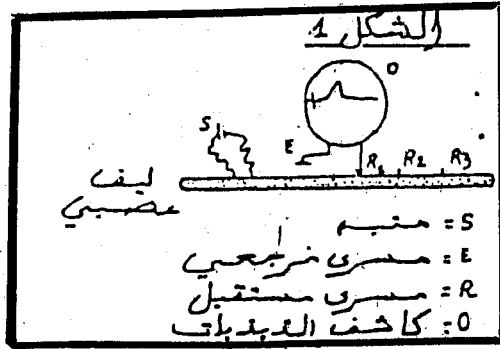 الشكل 1
O
S
E
R1 R2 R3
ليف
عصبي
S = منبه
E = مسرى مرجعي
R = مسرى مستقبل
O = كاشف الذبذبات